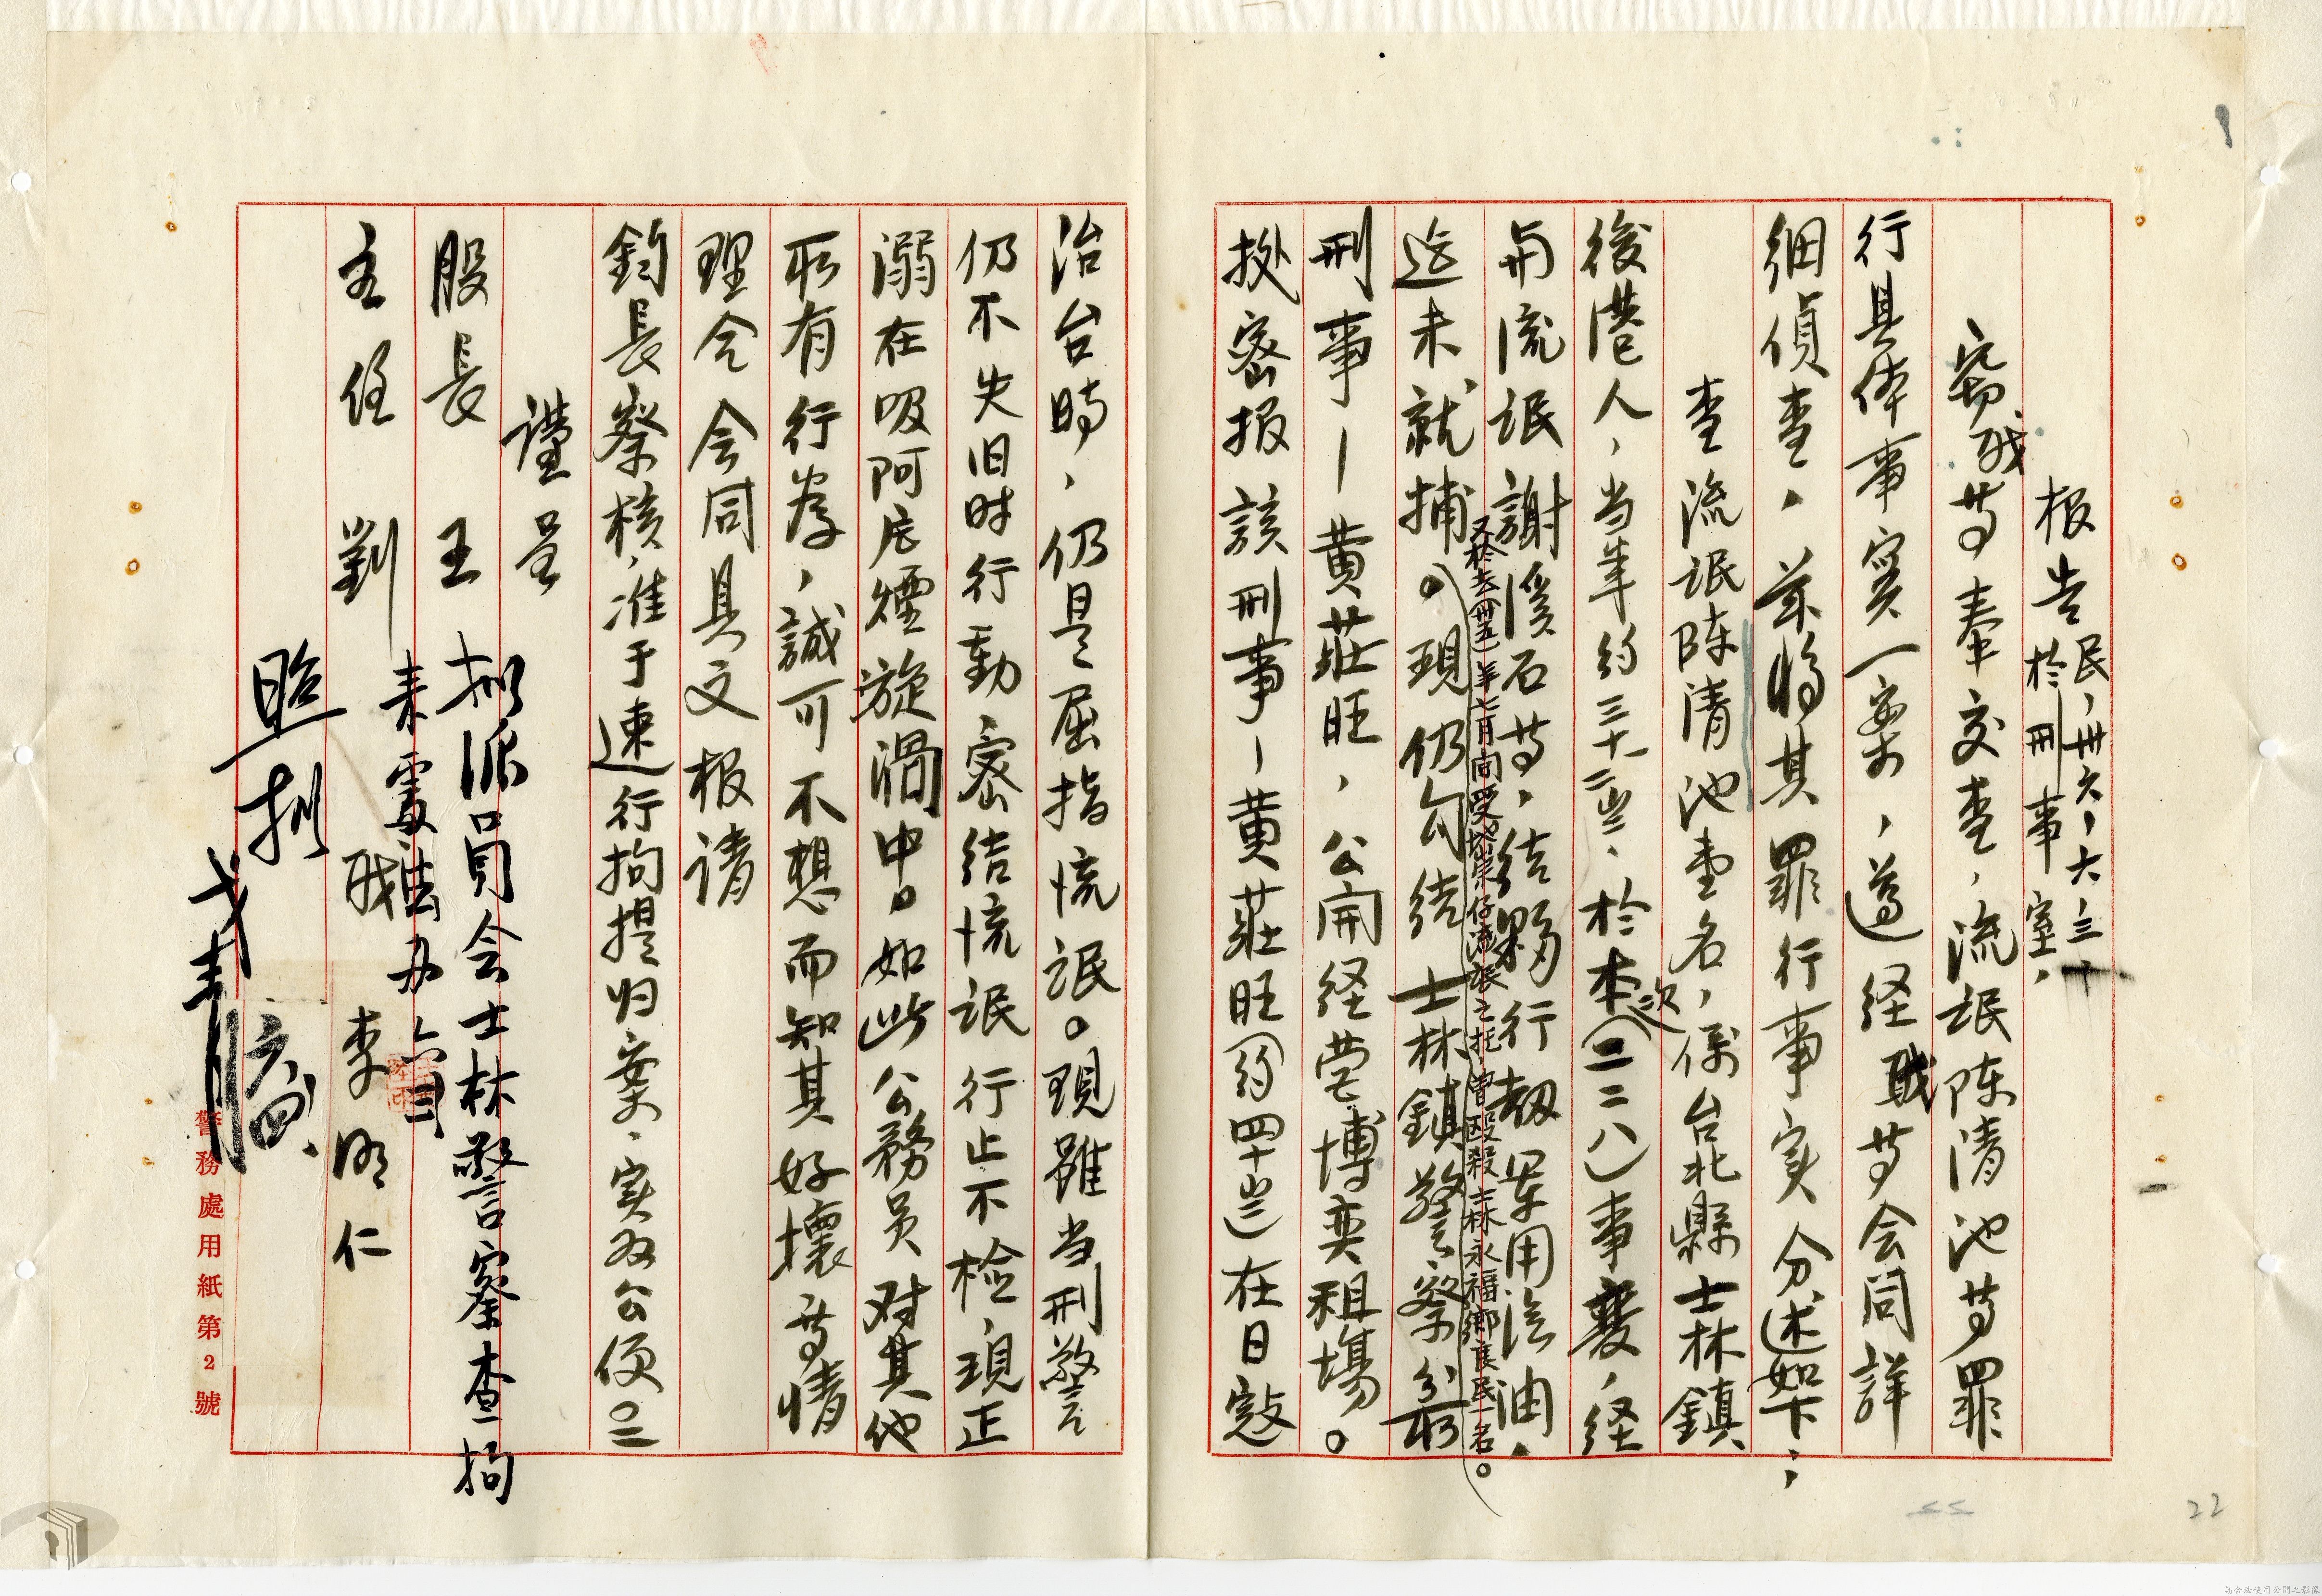 報告 民,卅六,六,三十
於刑事室,
竊職等奉交查,流氓陳清池等罪
行具体事實一案,遵経職等会同詳
細偵查,茲將其罪行事实分述如下:
查流氓陈清池壹名,係台北縣士林鎮
後港人,当年約三十二岁,於本次(二二八)事變,経
与流氓謝溪石等,结夥行劫軍用汽油,
又於去(卅五)年七月向受 崇仔流氓之托 曾殴殺士林永福鄉良民一名。
迄未就捕。現仍勾结士林鎮警察分所
刑事-黄莊旺,公開経营博奕租場。
挨密报該刑事-黄莊旺(约四十岁)在日寇
治台時,仍是屈指流氓。現雖当刑警
仍不失旧时行動密结流氓行止不檢,現正
溺在吸阿片煙漩渦中。如此公務员对其他
所有行為,誠可不想而知其好壞等情
理合会同具文报请
鈞長察核,准于速行拘提归案,实为公便。
謹呈
股長 王
主任 劉
職 李 仁
拟派員会士林警察查拘
来處法办
照拟
六四
警務處用紙第2號
22
請合法使用公開之影像